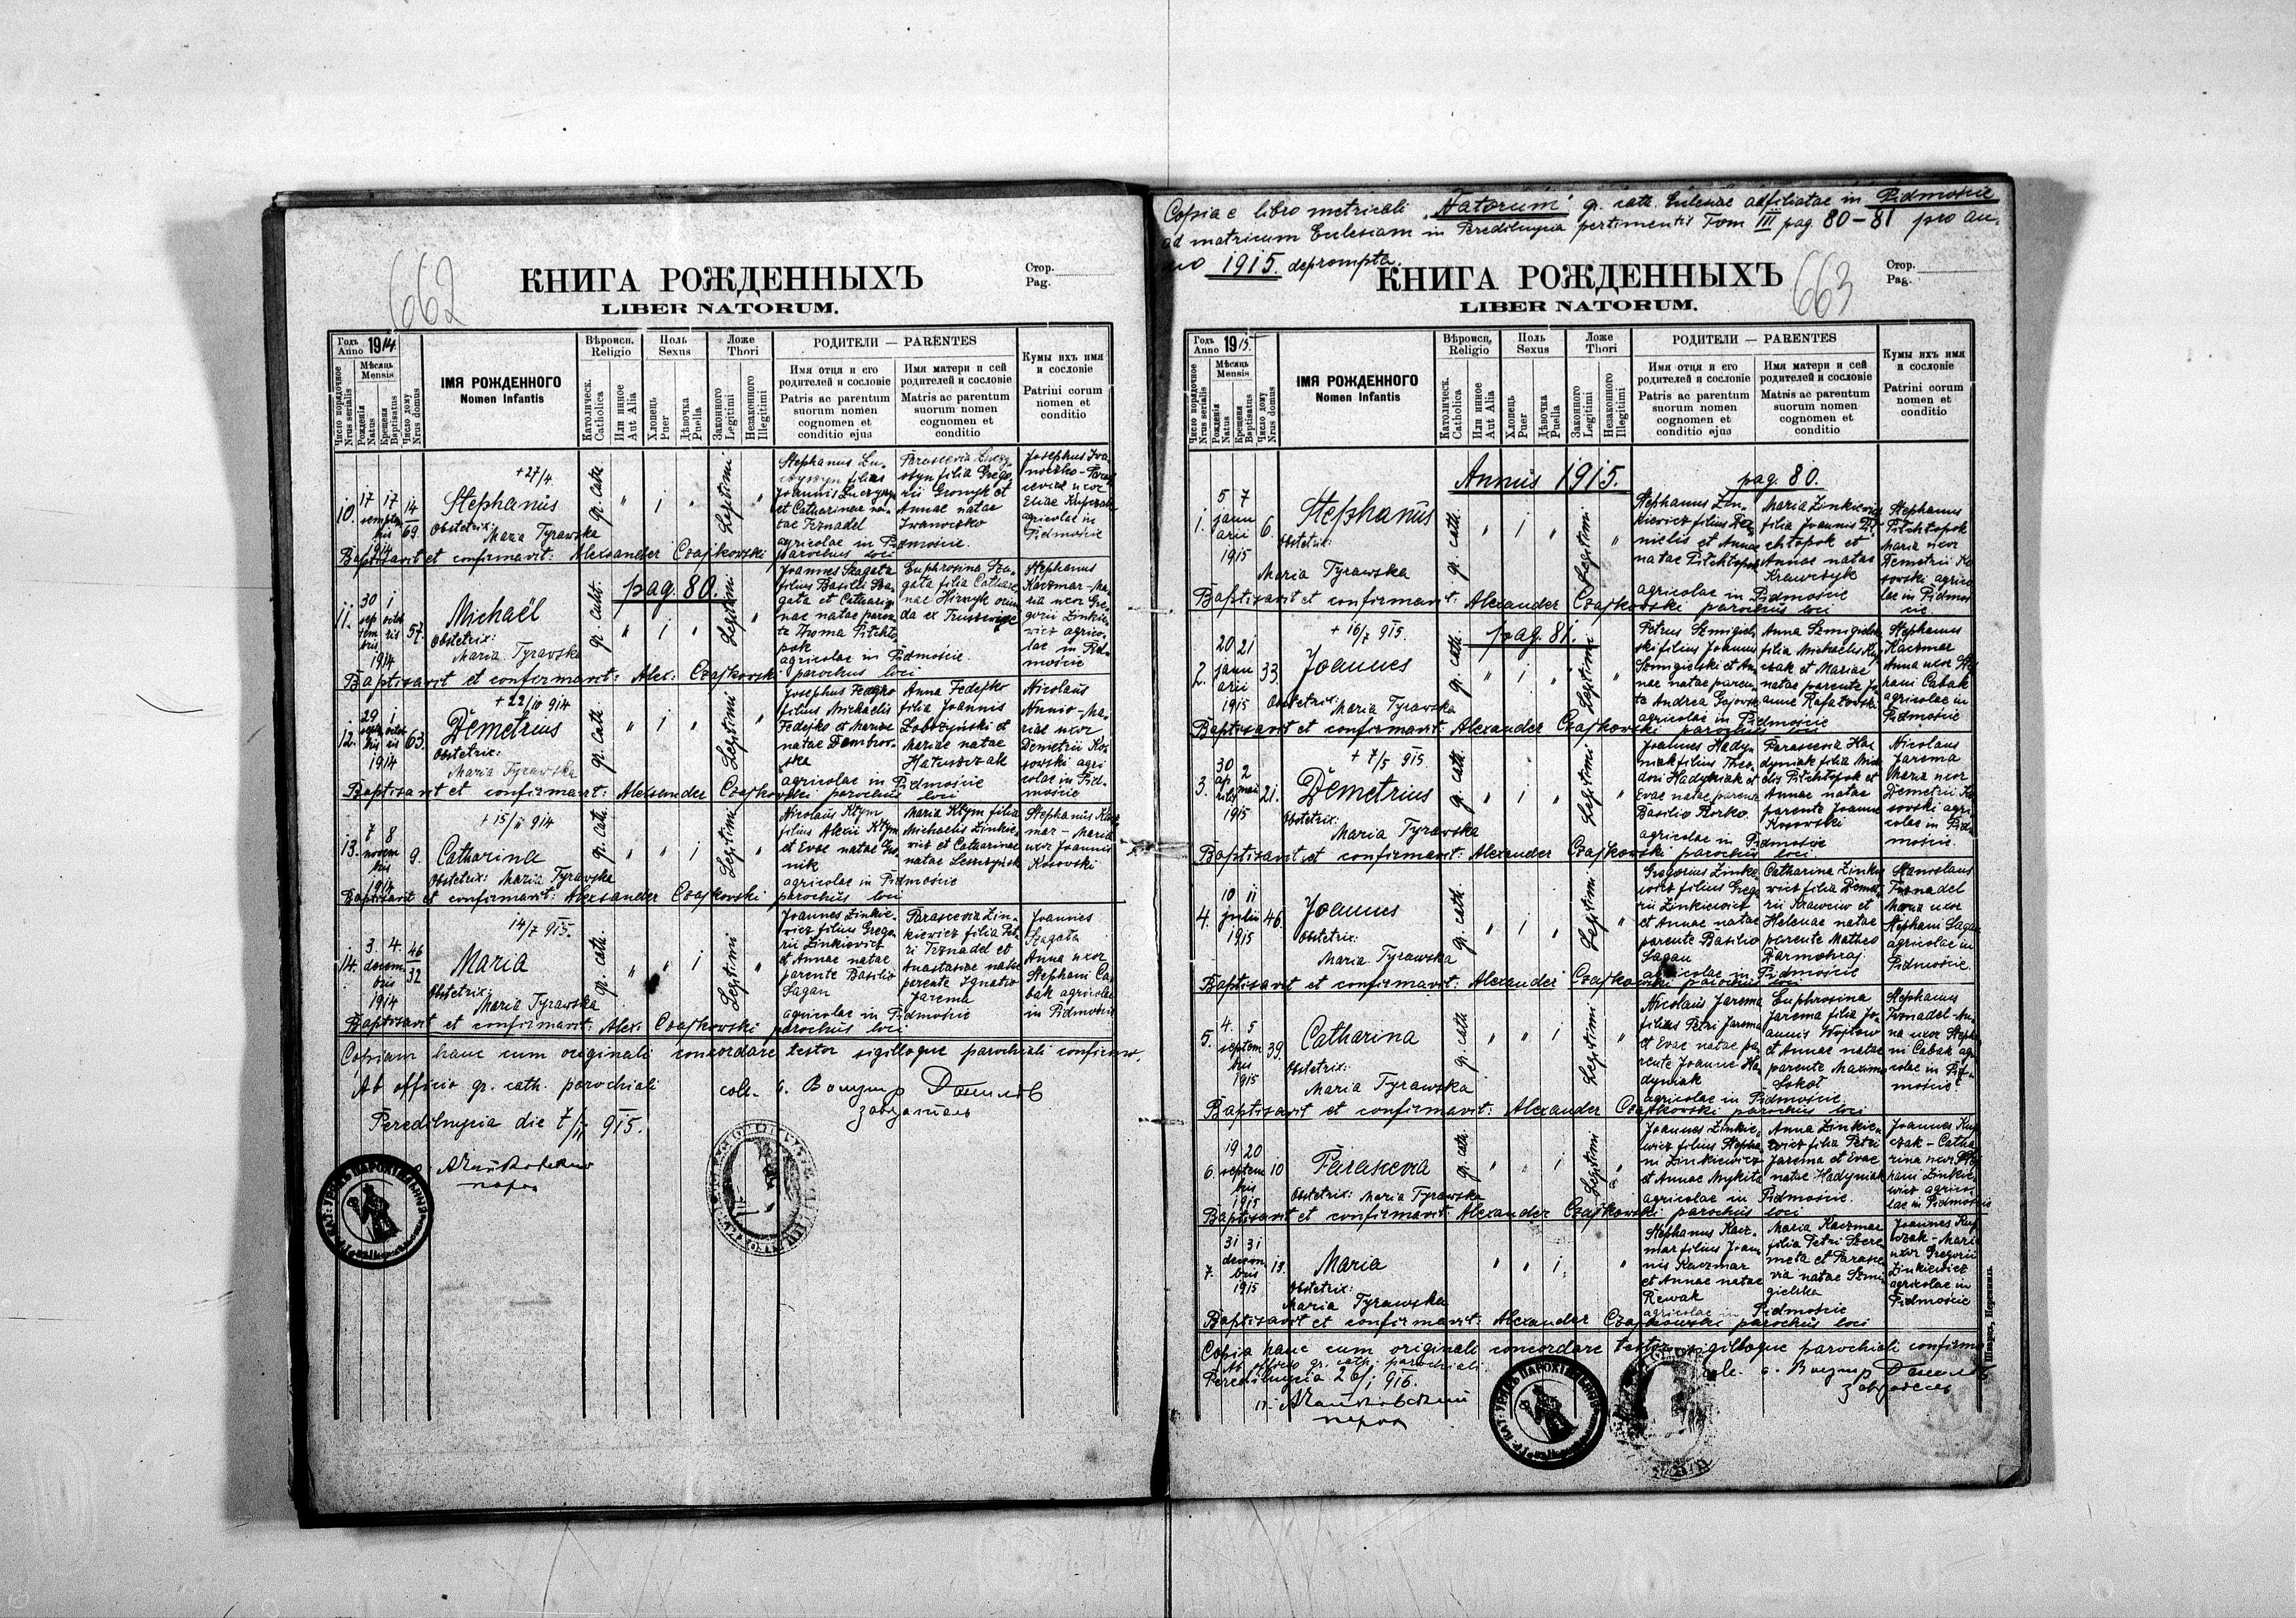 662
КНИГА РОЖДЕННЫХЪ
LIBER NATORUM.
Стор.
Pag.
Годъ
Anno 1914
Мѣсяць
Mensis
Число порядочное
Nrus serialis
Рожденія
Natus
Крещенія
Baptisatus
Число дому
Nrus domus
ІМЯ РОЖДЕННОГО
Nomen Infantis
Вѣроисп.
Religio
Католическ.
Catholica
Или инное
Aut Alia
Полъ
Sexus
Хлопець
Puer
Дѣвочка
Puella
Ложе
Thori
Законного
Legitimi
Незаконного
Illegitimi
РОДИТЕЛИ — PARENTES
Имя отця и его
родителей и сословіе
Patris ac parentum
suorum nomen
cognomen et
conditio ejus
Имя матери и сей
родителей и сословіе
Matris ac parentum
suorum nomen
cognomen et
conditio
Кумы ихъ имя
и сословіе
Patrini eorum
nomen et
conditio
10.
17 17
septem
bris
1914
14
69.
+ 27/4
Stephanus
Obstetrix:
Maria Tyrawska
gr. cath.
" 1 "
Legitimi
"
Stephanus Lu-
czyszyn filius
Joannis Luczyszyn
et Catharinae na-
tae Trznadel
agricolae in Pidmoście.
Parascevia Lucz-
yszyn filia Grego-
rii Gronyk et
Annae natae
Iwanoczko
Josephus Iwa-
noczko - Paras-
cevia uxor
Eliae Kupczak
agricolae in
Pidmoście
Baptisavit et confirmavit: Alexander Czajkowski parochus loci
pag. 80.
11.
30 1
sep octob
tem ris
bris
1914
57.
Michaël
Obstetrix:
Maria Tyrawska
gr. cath.
" 1 "
Legitimi
"
Joannes Szagata
filius Basilii Sza-
gata et Cathari-
nae natae paren-
te Thoma Pitchto-
pok
agricolae in Pidmoście.
Euphrosina Sza-
gata filia Cathari-
nae Hirnyk oriun-
da ex Truszowice
Stephanus
Kaczmar - Ma-
ria uxor Gre-
gorii Zinkie-
wicz agrico-
lae in Pid-
moście
Baptisavit et confirmavit: Alex: Czajkowski parochus loci
12.
29 1
1914
63.
+ 22/10 914
Demetrius
Obstetrix:
Maria Tyrawska
gr. cath.
" 1 "
Legitimi
"
Josephus Fedejko
filius Michaelis
Fedejko et Mariae
natae Dombrow-
ska
agricolae in Pidmoście
Anna Fedejko
filia Joannis
Łobczyński et
Mariae natae
Hatuszczak
Nicolaus
Annio - Ma-
riae uxor
Demetrii Kos-
sowski agri
colae in Pid-
moście
Baptisavit et confirmavit: Alexander Czajkowski parochus loci
13.
7 8
novem
bris
1914
9.
+ 15/11 914
Catharina
Obstetrix: Maria Tyrawska
gr. cath.
" " 1
Legitimi
"
Nicolaus Kłym
filius Alexii Kłym
et Evae natae
agricolae in Pidmoście
Maria Kłym filia
Michaelis Zinkie-
wicz et Catharinae
natae Leszczyńska
Stephanus Kacz
mar - Maria
uxor Joannis
Kosowski
Baptisavit et confirmavit: Alexander Czajkowski parochus loci
14.
3. 4.
decem
bris
1914
46
32
14/7 915.
Maria
Obstetrix:
Maria Tyrawska
gr. cath.
" 1
Legitimi
"
Joannes Zinkie-
wicz filius Grego-
rii Zinkiewicz
et Annae natae
parente Basilio
Sagan
agricolae in Pidmoście
Parascevia Zin-
kiewicz filia Pet-
ri Trznadel et
Anastasiae natae
parente Ignatio
Jarema
Joannes
Szagata
Anna uxor
Stephani Ca-
bak agricolae
in Pidmoście
Baptisavit et confirmavit: Alex: Czajkowski parochus loci
Copiam hanc cum originali concordare testor sigilloque parochiali confirmo.
Ab officio gr. cath. parochiali
Peredilnycia die 7/II 915.
663
Copia e libro metricali "Natorum" gr. cath. Eclesiae adfiliatae in Pidmoście
ad matricem Eclesiam in Peredilnycia pertinentis Tom III pag. 80-81 pro an-
no 1915. deprompta.
КНИГА РОЖДЕННЫХЪ
LIBER NATORUM.
Стор.
Pag.
Годъ
Anno 1915
Мѣсяць
Mensis
Число порядочное
Nrus serialis
Рожденія
Natus
Крещенія
Baptisatus
Число дому
Nrus domus
ІМЯ РОЖДЕННОГО
Nomen Infantis
Вѣроисп.
Religio
Католическ.
Catholica
Или инное
Aut Alia
Полъ
Sexus
Хлопець
Puer
Дѣвочка
Puella
Ложе
Thori
Законного
Legitimi
Незаконного
Illegitimi
РОДИТЕЛИ — PARENTES
Имя отця и его
родителей и сословіе
Patris ac parentum
suorum nomen
cognomen et
conditio ejus
Имя матери и сей
родителей и сословіе
Matris ac parentum
suorum nomen
cognomen et
conditio
Кумы ихъ имя
и сословіе
Patrini eorum
nomen et
conditio
Annus 1915.
pag. 80.
1.
5 7
janu
arii
1915
6.
Stephanus
Obstetrix:
Maria Tyrawska
gr. cath.
" 1 "
Legitimi
"
Stephanus Zin-
kiewicz filius Da-
nielis et Annae
natae Pitchtopok
agricolae in Pidmoście
Maria Zinkiewicz
filia Joannis Pit-
chtopok et
Annae natae
Krawczyk
Stephanus
Pitchtopok
Maria uxor
Demetrii Ko
sowski agrico
lae in Pidmoś
cie.
Baptisavit et confirmavit: Alexander Czajkowski parochus loci
pag. 81.
2.
20 21
janu
arii
1915
33.
+ 16/7 915.
Joannes
Obstetrix: Maria Tyrawska
gr. cath.
" 1 "
Legitimi
"
Petrus Szmigiel-
ski filius Joannis
Szmigielski et An-
nae natae paren-
te Andrea Gajowski
agricolae in Pidmoście
Anna Szmigielska
filia Michaelis Kup
czak et Mariae
natae parente Jo-
anne Rafałowski
Stephanus
Kaczmar
Anna uxor Ste
phani Cabak
agricolae in
Pidmoście
Baptisavit et confirmavit: Alexander Czajkowski parochus loci
3.
30 2
ap mai
rilis
1915
21.
+ 7/5 915.
Demetrius
Obstetrix:
Maria Tyrawska
gr. cath.
" 1 "
Legitimi
"
Joannes Hady-
niak filius Theo-
dori Hadyniak et
Evae natae parente
Basilio Borko.
agricolae in Pidmoście
Parascevia Ha-
dyniak filia Mich
aelis Pitchtopok et
Annae natae
parente Joanne
Kosowski
Nicolaus
Jarema
Maria uxor
Demetrii Ko
sowski agri
colae in Pid
moście.
Baptisavit et confirmavit: Alexander Czajkowski parochus loci
4.
10 11
julii
1915
46.
Joannes
Obstetrix:
Maria Tyrawska
gr. cath.
" 1 "
Legitimi
"
Gregorius Zinkie-
wicz filius Grego-
rii Zinkiewicz
et Annae natae
parente Basilio
Sagan
agricolae in Pidmoście
Catharina Zinkie
wicz filia Demet-
rii Krawciw et
Helenae natae
parente Matheo
Darmohraj
Stanislaus
Trznadel
Maria uxor
Stephani Sagan
agricolae in
Pidmoście.
Baptisavit et confirmavit: Alexander Czajkowski parochus loci
5.
4. 5
septem
bris
1915
39.
Catharina
Obstetrix:
Maria Tyrawska
gr. cath
" " 1
Legitimi
"
Nicolaus Jarema
filius Petri Jarema
et Evae natae pa
rente Joanne Ha
dyniak
agricolae in Pidmoście.
Euphrosina
Jarema filia Jo-
annis Wojtow
et Annae natae
parente Maximo
Sokoł
Stephanus
Trznadel - An-
na uxor Stepha
ni Cabak ag
ricolae in Pid-
moście.
Baptisavit et confirmavit: Alexander Czajkowski parochus loci
6.
19 20
septem
bris
1915
10
Parascevia
Obstetrix: Maria Tyrawska
gr. cath.
" " 1
Legitimi
"
Joannes Zinkie-
wicz filius Stepha
ni Zinkiewicz
et Annae Mykita
agricolae in Pidmoście.
Anna Zinkie-
wicz filia Petri
Jarema et Evae
natae Hadyniak
Joannes Kup
czak - Catha
rina uxor Ste
phani Zinkie-
wicz agrico-
lae in Pidmoście
Baptisavit et confirmavit: Alexander Czajkowski parochus loci
7.
31 31
decem
bris
1915
13.
Maria
Obstetrix:
Maria Tyrawska
" " 1
"
Stephanus Kacz-
mar filius Joan
nis Kaczmar
et Annae natae
Rewak
agricolae in Pidmoście
Maria Kaczmar
filia Petri Szere
meta et Parasce
via natae Szmi
gielska
Joannes Kup
czak - Maria
uxor Gregorii
Zinkiewicz
agricolae in
Pidmoście
Baptisavit et confirmavit: Alexander Czajkowski parochus loci
Copia hanc cum originali concordare testor sigilloque parochiali confirmo
Ab officio gr. cath. parochiali
Peredilnycia 26/1 916.